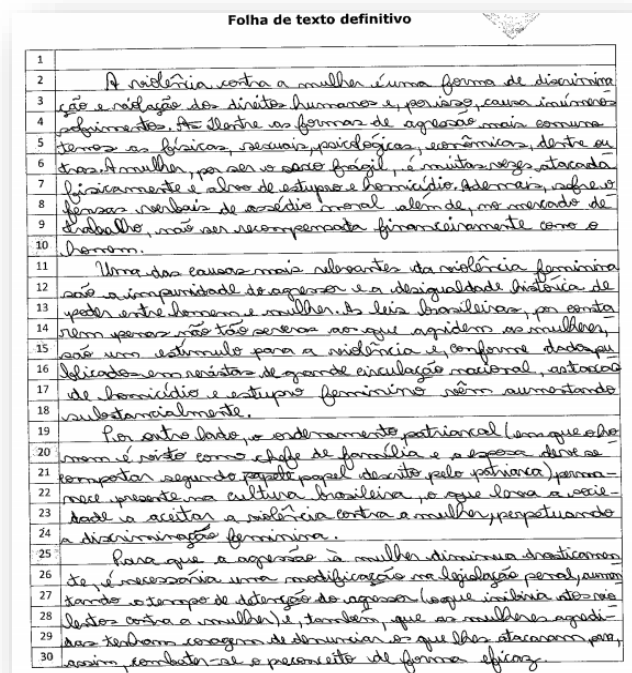 Folha de texto definitivo
1
2 A violência contra a mulher é uma forma de discrimina
3 ção e violação dos direitos humanos e, por isso, causa inúmeros
4 sofrimentos. Dentre as formas de agressão mais comuns
5 temos as físicas, sexuais, psicológicas, econômicas, dentre ou
6 tras. A mulher, por ser o sexo frágil, é muitas vezes atacada
7 fisicamente e alvo de estupro e homicídio. Ademais, sofre o
8 fensas verbais de assédio moral além de, no mercado de
9 trabalho, não ser recompensada financeiramente como o
10 homem.
11 Uma das causas mais relevantes da violência feminina
12 são a impunidade do agressor e a desigualdade histórica de
13 poder entre homem e mulher. As leis brasileiras, por consta
14 rem penas não tão severas aos que agridem as mulheres,
15 são um estímulo para a violência e, conforme dados pu
16 blicados em revistas de grande circulação nacional, as taxas
17 de homicídio e estupro feminino vêm aumentando
18 substancialmente.
19 Por outro lado, o ordenamento patriarcal (em que o ho
20 mem é visto como chefe de família e a esposa deve se
21 comportar segundo papel descrito pelo patriarca) perma-
22 nece presente na cultura brasileira, o que leva a socie-
23 dade a aceitar a violência contra a mulher, perpetuando
24 a discriminação feminina.
25 Para que a agressão à mulher diminua drasticamen
26 te, é necessária uma modificação na legislação penal, aumen
27 tando o tempo de detenção do agressor (o que inibiria atos vio
28 lentos contra a mulher) e, também, que as mulheres agredi-
29 das tenham coragem de denunciar os que lhes atacaram para,
30 assim, combater-se o preconceito de forma eficaz.